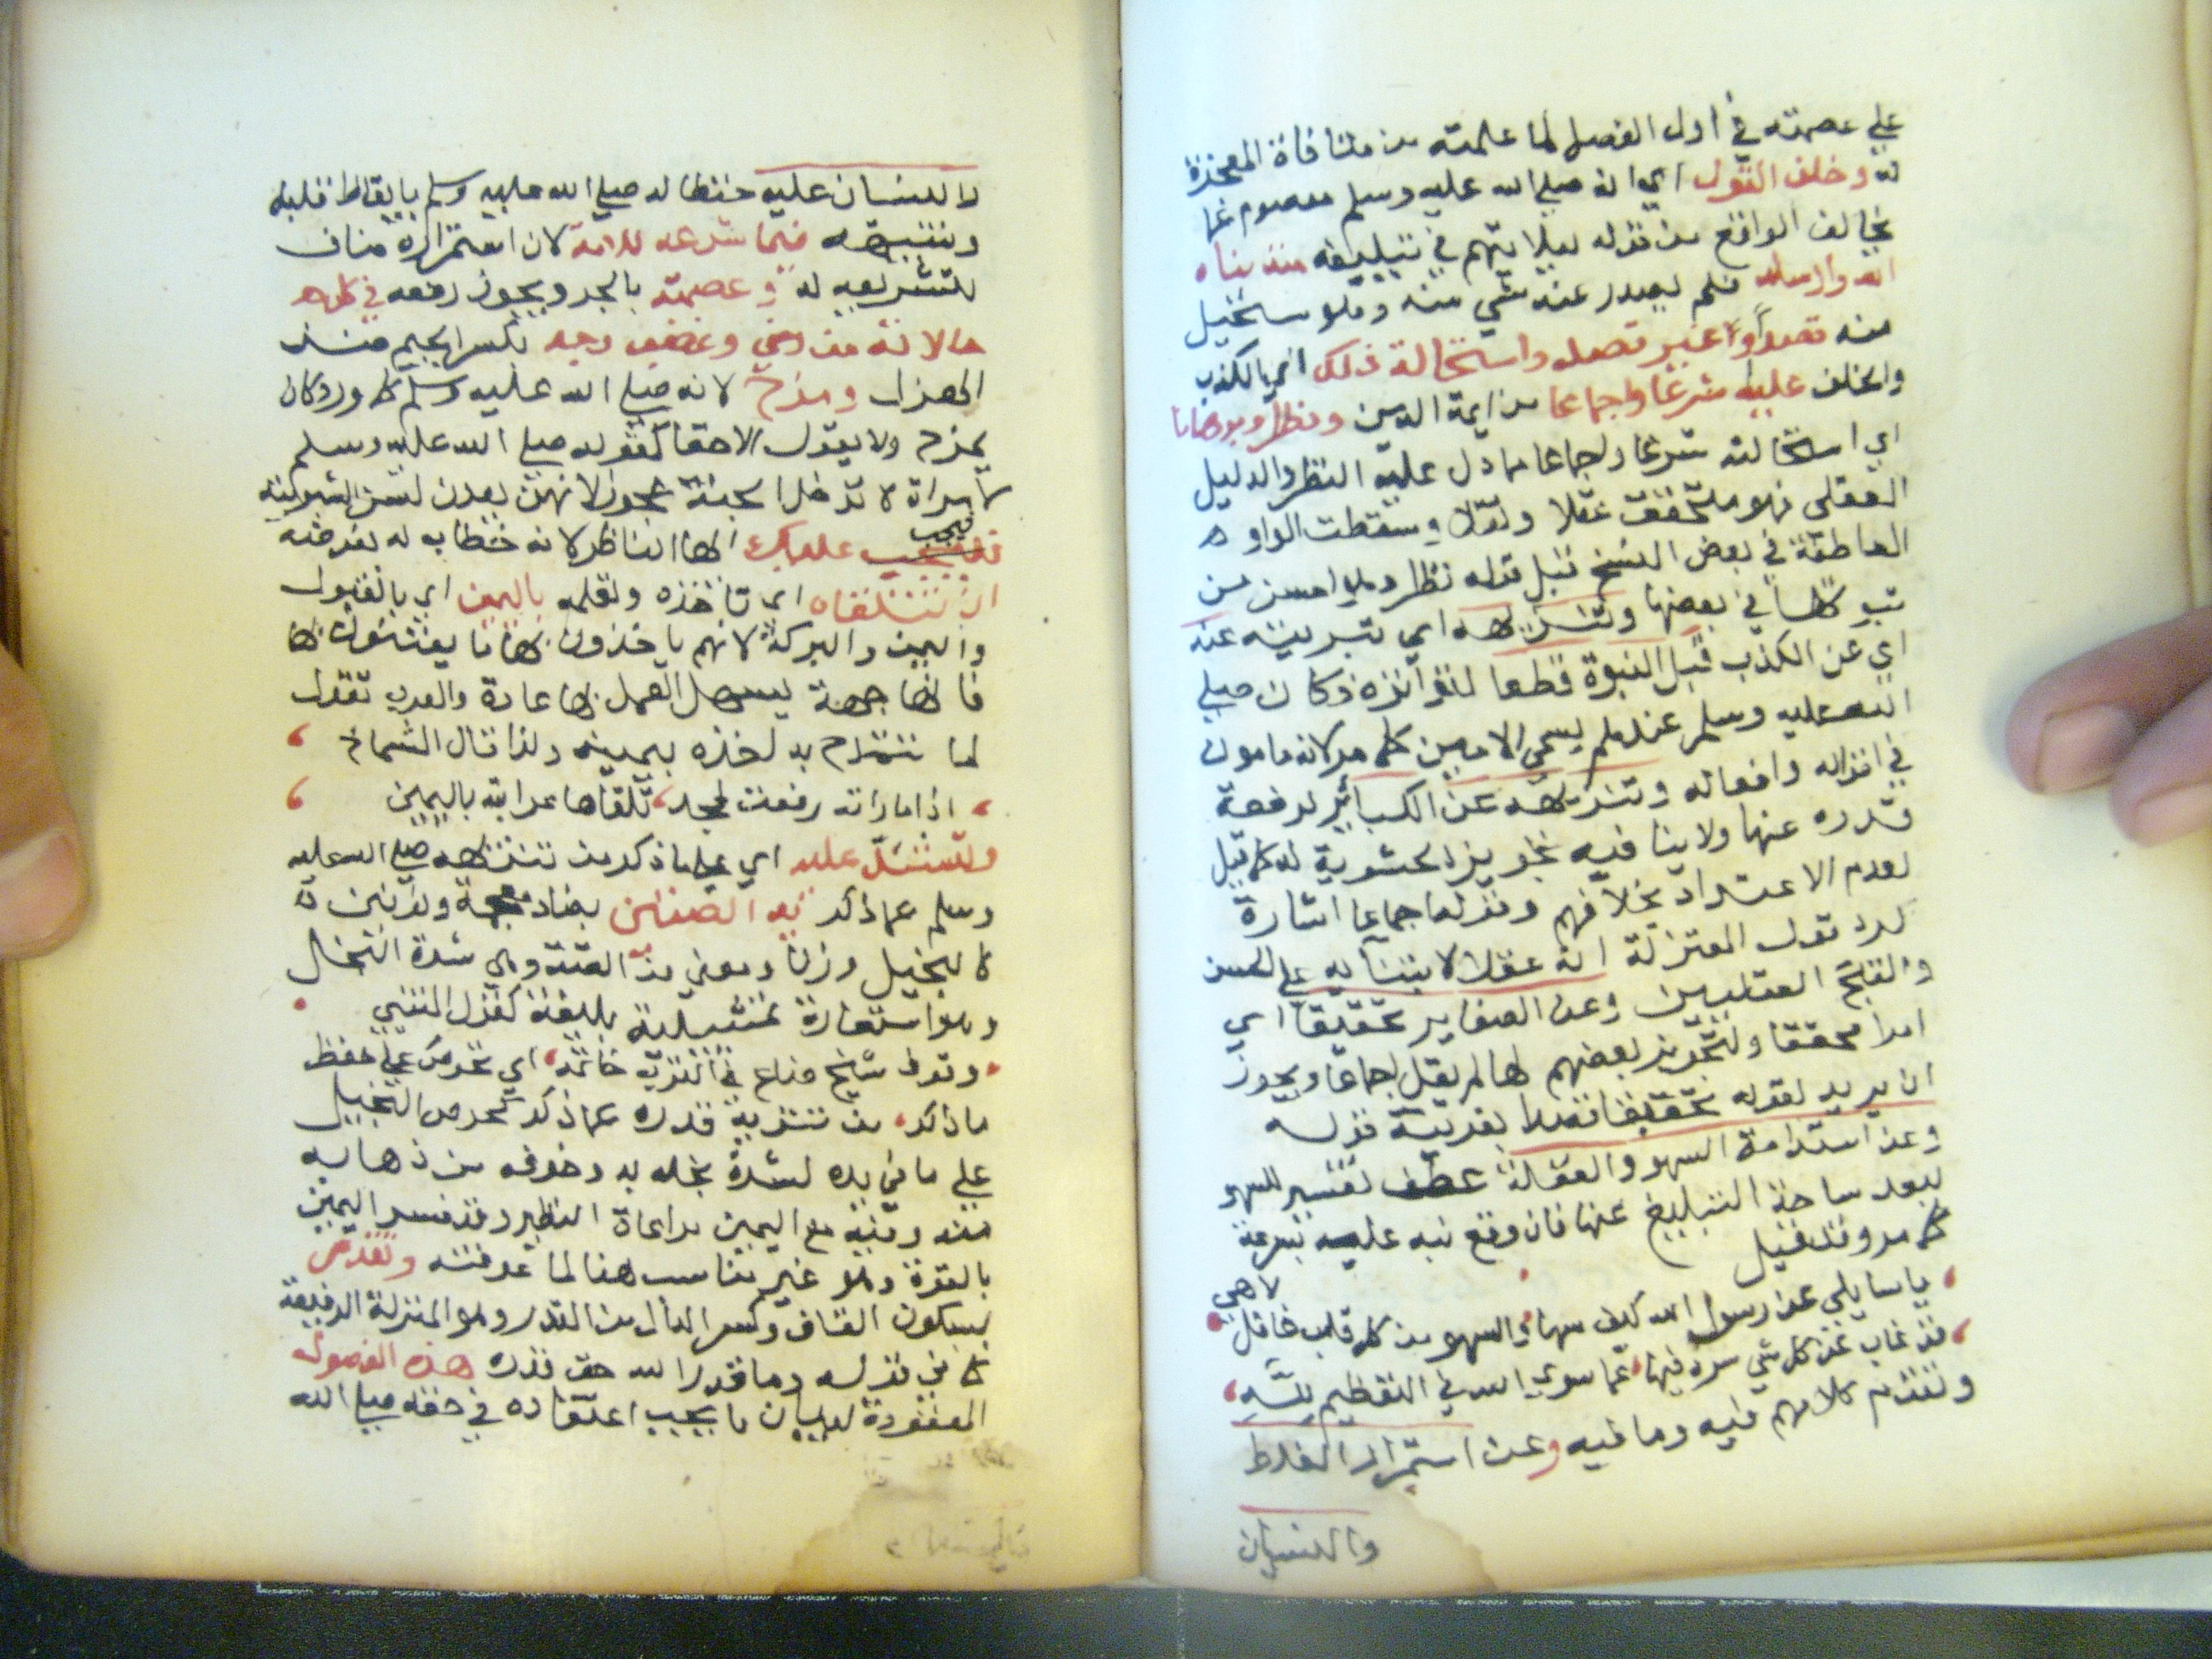 علي عصمته في أول الفصل لما علمته من منافاة المعجزة
له وخلف القول اي انه صلي الله عليه وسلم معصوم عما
يخالف الواقع من قوله ليلا يتهم في تبليغه منذ نباه
الله وارسله فلم يصدر عنه شي منه وهو مستحيل
منه قصدا أو غير قصد واستحالة ذلك اي الكذب
والخلف عليه شرعا واجماعا من ايمة الدين ونظرا وبرهانا
اي استحالته شرعا واجماعا مما دل عليه النظر والدليل
العقلي فهو متحقق عقلا ونقلا وسقطت الواو
العاطفة في بعض النسخ قبل قوله نظرا وهي احسن من
ثبوتها في بعضها وتنزيهه اي تبريته عنه
اي عن الكذب قبل النبوة قطعا لتواتره وكان صلي
الله عليه وسلم عندهم يسمي الامين كما مر لانه مامون
في اقواله وافعاله وتنزيهه عن الكبائر لرفعة
قدره عنها ولا ينافيه تجويز الحشوية له كما قيل
لعدم الاعتداد بخلافهم وقوله اجماعا اشارة
لرد قول المعتزلة انه عقلا لابتنائه علي الحسن
والقبح العقليين وعن الصغاير تحقيقا اي
امرا محققا ولتجويز بعضهم لها لم يقل اجماعا ويجوز
ان يريد لقوله تحقيقا قصدا بقرينة قوله
وعن استدامة السهو والغفلة عطف تفسير للسهو
لبعد ساحة التبليغ عنها فان وقع نبه عليه بسرعة
كما مر وقد قيل
يا سايلي عن رسول الله كيف سها والسهو من كل قلب غافل لاهي
قد غاب عن كل شي سره فيها عما سوي الله في التعظيم لله
وتقدم كلامهم فيه وما فيه وعن استمرار الغلط
والنسيان
والنسيان عليه حفظا له صلي الله عليه وسلم بايقاظ قلبه
وتنبيهه فيما شرعه للامة لان استمراره مناف
لتشريعه له وعصمته بالجر ويجوز رفعه في كل
حالاته من رضي وغضب وجد بكسر الجيم ضد
الهزل ومزح لانه صلي الله عليه وسلم كما ورد كان
يمزح ولا يقول الاحقا كقوله صلي الله عليه وسلم
لامراة لا تدخل الجنة عجوز لانهن يعدن لسن الشبوبية
فيجب عليك ايها الناظر لانه خطاب له لغرضه
ان تتلقاه اي تاخذه وتقلبه باليمين اي بالقبول
واليمن والبركة لانهم ياخذون بها ما يعتنون بها
فانها جهة يسهل العمل بها عادة والعرب تقول
لما تتمدح به اخذه بيمينه ولذا قال الشماخ
اذا ما راية رفعت لمجد تلقاها عرابة باليمين
وتشد عليه اي علي ما ذكر من تنزيهه صلي الله عليه
وسلم عما ذكر يد الضنين بضاد معجمة ونونين
كالبخيل وزنا ومعني من الضنة وهي شدة البخل
وهو استعارة تمثيلية بليغة كقول المتنبي
وقوف شحيح ضاع في الترب خاتمه اي تحرص علي حفظ
ما ذكر من تنزيه قدره عما ذكر كحرص البخيل
علي ما في يده لشدة بخله به وخوفه من ذهابه
منه وفيه مع اليمين مراعاة النظير وقد فسر اليمين
بالقوة وهو غير مناسب هنا لما عرفته وتقدر
بسكون القاف وكسر الدال من القدر وهو المنزلة الرفيعة
كما في قوله وما قدروا الله حق قدره هذه الفصول
المعقودة لبيان ما يجب اعتقاده في حقه صلي الله